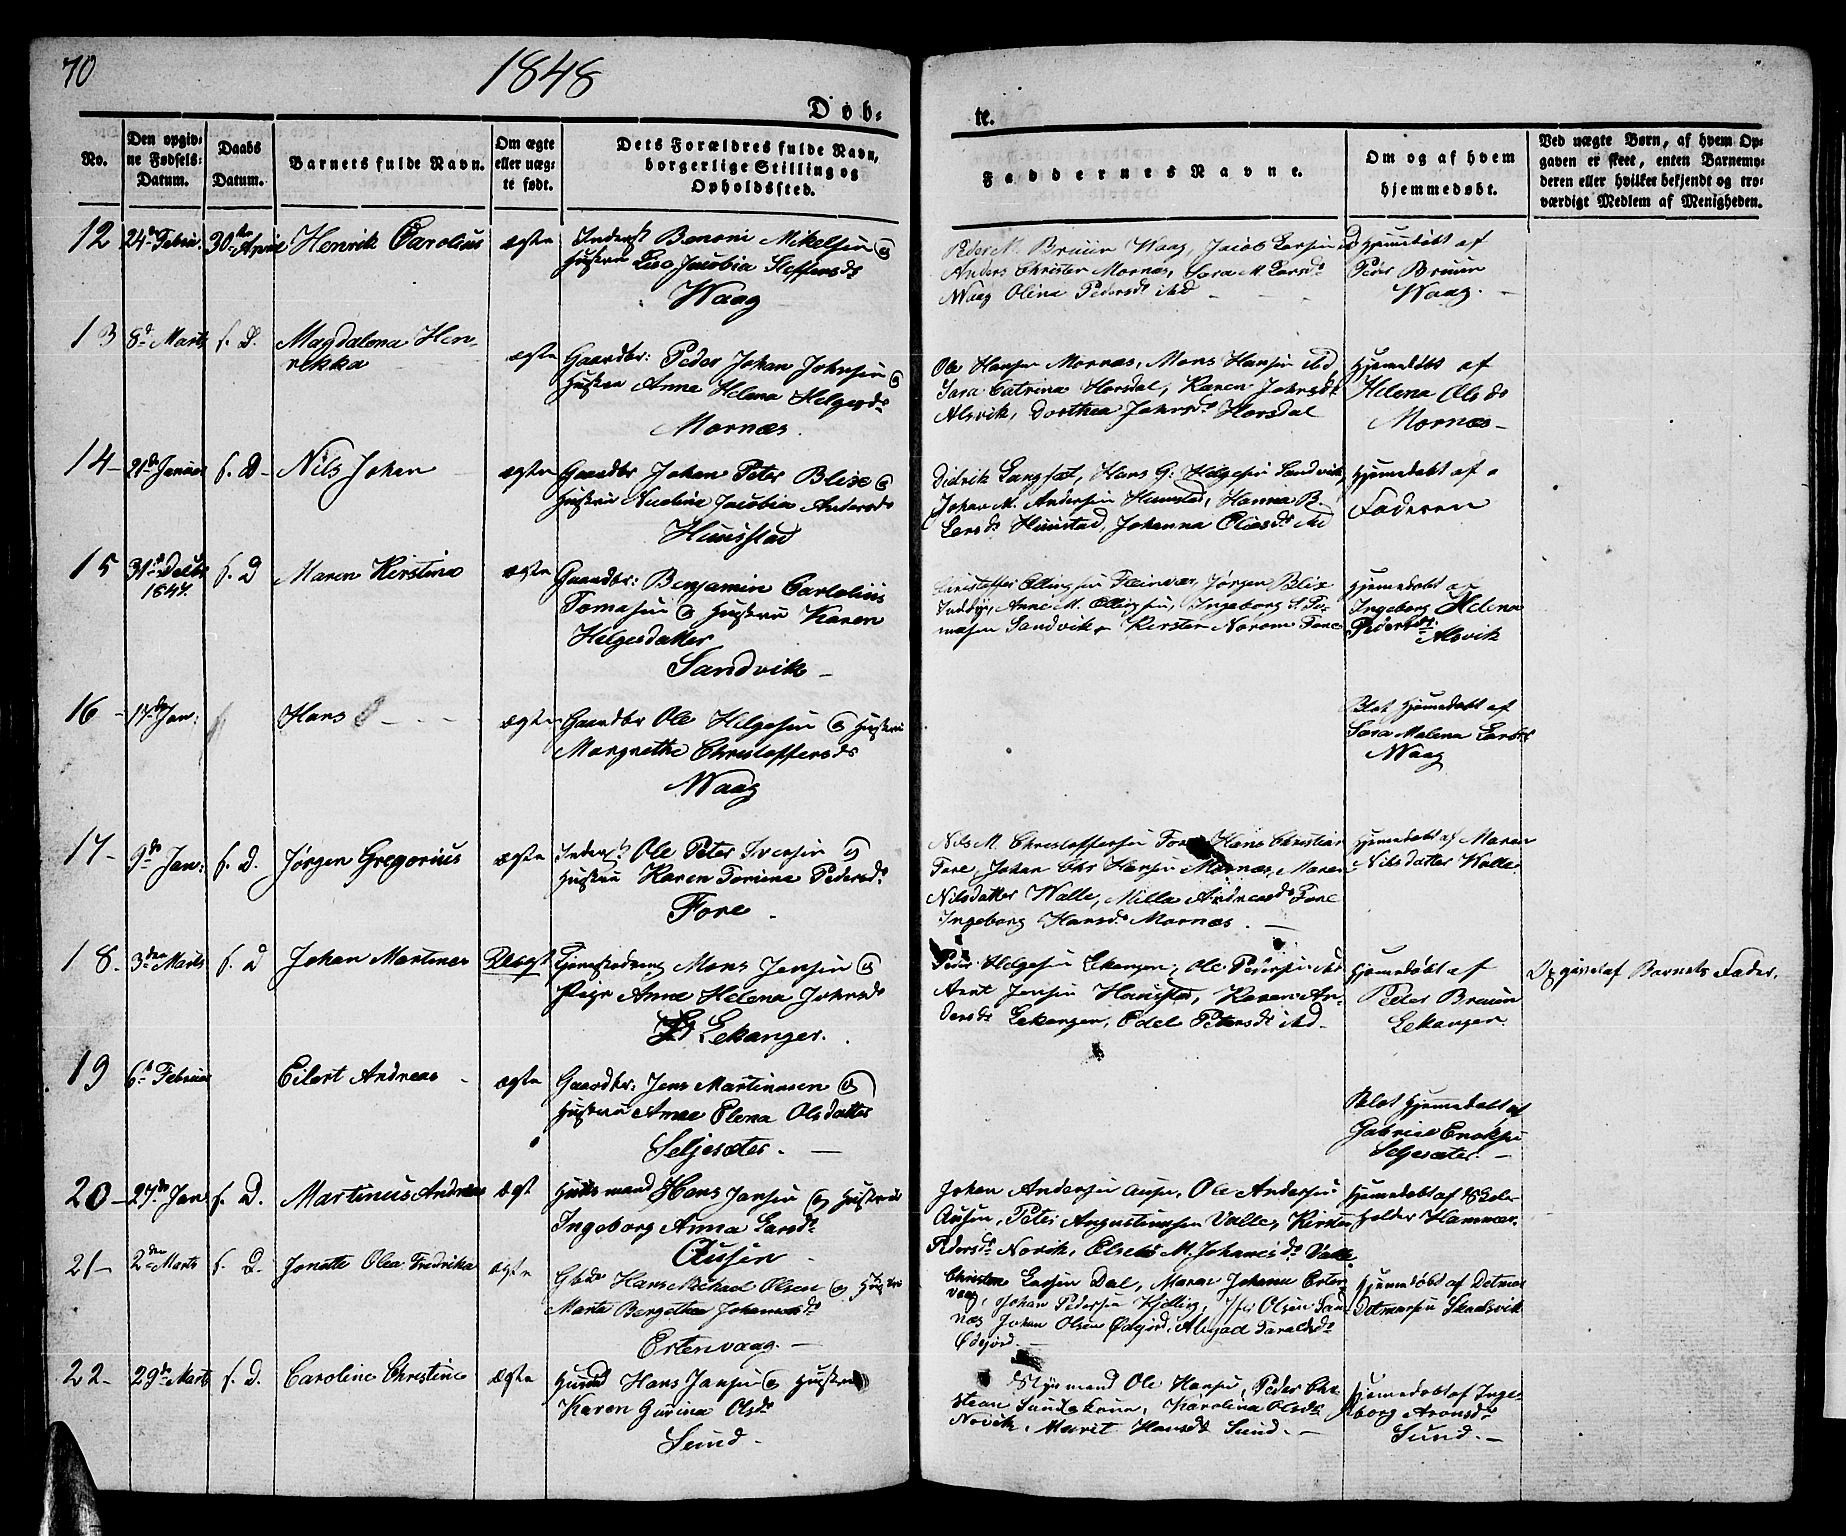 70
1848
Døb-
te.
No.
Den opgiv-
ne Fødsels-
Datum.
Daabs
Datum.
Barnets fulde Navn.
Om ægte
eller uæg-
te født.
Dets Forældres fulde Navn,
borgerlige Stilling og
Opholdssted.
Faddernes Navne.
Om og af hvem
hjemmedøbt.
Ved uægte Børn, af hvem Op-
gaven er skeet, enten Barnemo-
deren eller hvilket bekjendt og tro-
værdigt Medlem af Menigheden.
12
24de Febru.
30te April
Henrik Carolius
ægte
Inderst Benoni Mikelsen og
Hustru Lisa Jacobia Steffensdr
Waag
Peder M. Bruun Waag, Jacob Larsen ibd
Anders Christen Mornæs, Sara M. Larsdr
Waag Olina Pedersdr ibd
Hjemedøbt af
Peder Bruun
Waag.
13
8d Marts
s. D.
Magdalena Hen-
rikka
ægte
Gaardbr: Peder Johan Johnsen og
Hustru Anna Helena Helgesdr
Mornæs.
Ole Hansen Mornæs, Mons Hansen ibd
Sara Catrina Horsdal, Karen Johnsdr
Alsvik, Dorthea Johnsdr Horsdal
Hjemedøbt af
Helena Olsdr
Mornæs
14
21de Januar
s. D
Nils Johan
ægte
Gaardbr Johan Peter Blix og
Hustru Nicolina Jacobia Andersdr
Hunstad
Didrik Langsæt, Hans G. Helgesen Sandvik,
Johan M. Andersen Hunstad, Hanna B.
Larsdr Hunstad, Johanna Eliasdr ibd
Hjemedøbt af
Faderen
15
31te Decbr
1847.
s. D
Maren Kirstine
ægte
Gaardbr: Benjamin Carlolius
Tomasen og Hustru Karen
Helgesdatter
Sandvik
Christoffer Ellingsen Fleinvær, Jørgen Blix
Inddyr, Anne M. Ellingsen, Ingeborg S. To-
masen Sandvik, Kirsten Norom Fore
Hjemedøbt af
Ingeborg Helena
Pedersdr
Alsvik
16
17de Jan:
Hans
ægte
Gaardbr Ole Helgesen og Hustru
Margrethe Christoffersdr
Waag
Blot Hjemedøbt af
Sara Malena Larsdr
Waag
17
9de Jan:
s. D.
Jørgen Gregorius
ægte
Inderst Ole Peter Iversen og
Hustru Karen Torina Pedersdr
Fore
Nils M. Christoffersen Fore, Hans Christian
Fore, Johan Chr Hansen Mornæs, Maren
Nilsdatter Walle, Milla Andreasdr Fore
Ingeborg Hansdr Mornæs.
Hjemedøbt af Maren
Nilsdatter Walle
18.
3die Marts
s. D
Johan Martines
Uægt
Tjenestedreng Mons Jensen og
Pige Anne Helena Johnsdr
Lekanger.
Peder Helgesen Lekanger, Ole Pedersen ibd
Arnt Jensen Hunstad, Karen An-
dersdr Lekanger, Edel Petersdr ibd.
Hjemedøbt af
Peder Bruun
Lekanger
Opgivet af Barnets Fader.
19
6te Februar
Eilert Andreas
ægte
Gaardbr: Jens Martinusen og
Hustru Anne Elena Olsdatter
Seljesæter.
Blot Hjemedøbt af
Gabriel Enoksen
Seljesæter.
20
27de Jan
s. D.
Martinus Andreas
ægt
Huusmand Hans Jansen og Hustru
Ingeborg Anna Larsdr
Ausen
Johan Andersen Ausen, Ole Andersen
Ausen, Peter Augustinussen Valle, Kirsten
Pedersdr Norvik, Elseba M. Johansdr Valle
Hjemedøbt af Skole-
holder Hammer.
21
2den Marts
s. D.
Jonette Olea Fredrika
ægte
Gbdr Hans Michael Olsen og Hustru
Marta Bergethea Johannesdr
Ertenvaag.
Christen Larsen Dal, Maren Johana Erten-
vaag, Johan Pedersen Kjelling, Iver Olsen Sand-
næs Johan Olsen Ødejord, Abigael Taraldsdr
Ødejord.
Hjemedøbt af Detmar
Detmarsen Skaalsvik
22
29de Marts
s. D.
Caroline Christine
ægte
Husmd Hans Jansen og Hustru
Karen Gurina Olsdr
Sund
Styrmand Ole Hansen, Peder Chr
Stean Sundskone, Karolina Olsdr
Norvik, Marit Hansdr Sund.
Hjemedøbt af Inge-
borg Aronsdr
Sund.